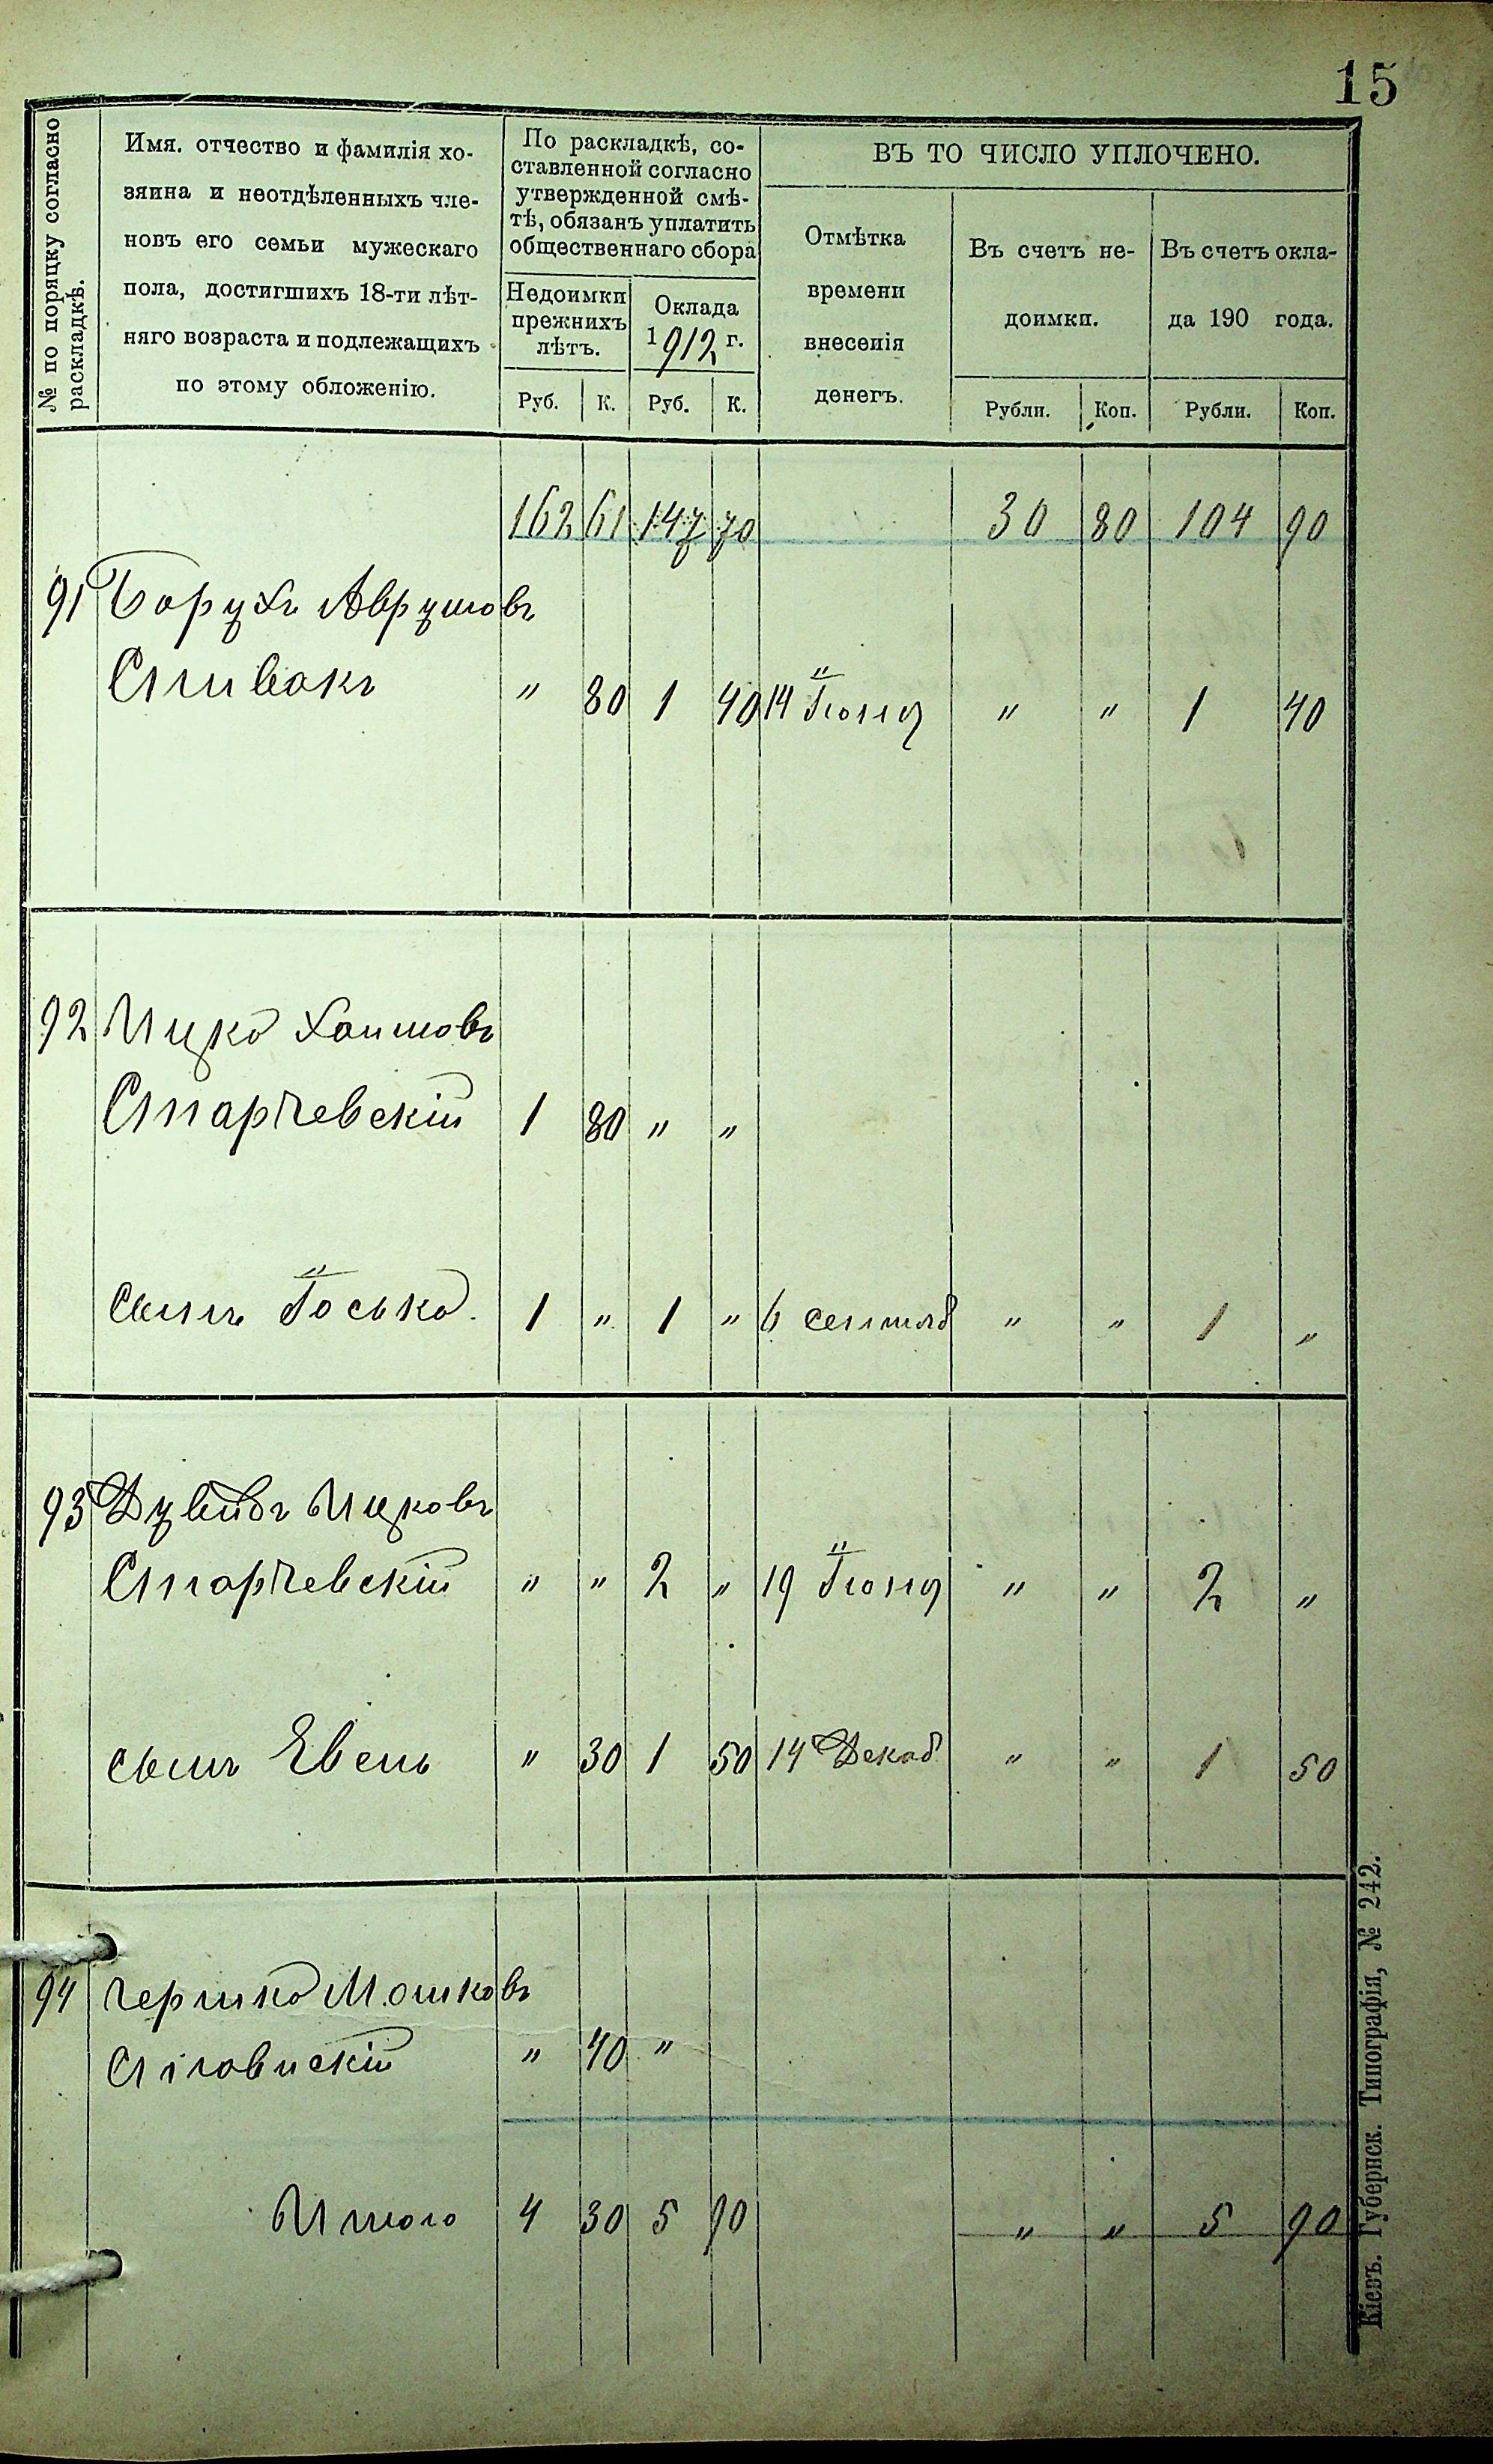 15
№ по порядку согласно
раскладкѣ.
Имя. отчество и фамилія хо-
зяина и неотдѣленныхъ чле-
новъ его семьи мужескаго
пола, достигшихъ 18-ти лѣт-
няго возраста и подлежащихъ
по этому обложенію.
По раскладкѣ, со-
ставленной согласно
утвержденной смѣ-
тѣ, обязанъ уплатить
общественнаго сбора
Недоимки
прежнихъ
лѣтъ.
Оклада
1912 г.
Руб. К. Руб. К.
ВЪ ТО ЧИСЛО УПЛОЧЕНО.
Отмѣтка
времени
внесенія
денегъ.
Въ счетъ не-
доимки.
Въ счетъ окла-
да 190 года.
Рубли. Коп. Рубли. Коп.
162 61 147 70 30 80 104 90
91 Борухъ Аврумовъ
Спивакъ " 80 1 40 14 Іюня " " 1 40
92 Ицко Хаимовъ
Старчевскій 1 80 " "
сынъ Іосько. 1 " 1 " 6 сентяб " " 1 "
93 Дувидъ Ицковъ
Старчевскій " " 2 " 19 Іюня " " 2 "
сынъ Евель " 30 1 50 14 Декаб. " " 1 50
94 Гершко Мошковъ
" 40 "
Итого 4 30 5 90 " " 5 90
Кіевъ. Губернск. Типографія, № 242.